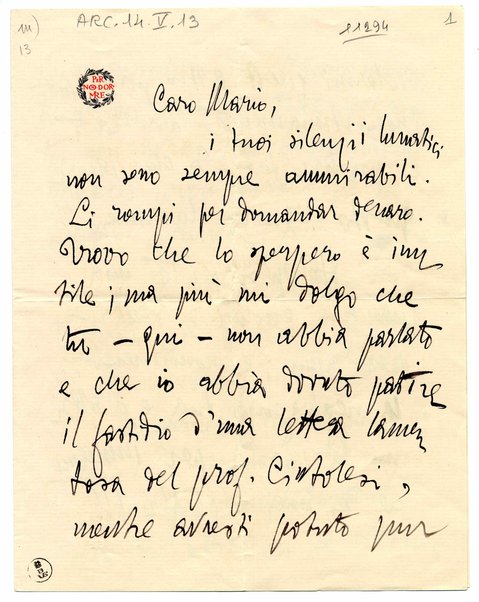 111)
13
ARC. 14. V. 13
11294
1
PER
NON DOR
MIRE
Caro Mario,
i tuoi silenzii lunatici
non sono sempre ammirabili.
Li rompi per domandar denaro.
Trovo che lo sperpero è inu
tile; ma più mi dolgo che
tu – qui – non abbia parlato
e che io abbia dovuto patire
il fastidio d'una lettera lamen
tosa del prof. Cintolesi,
mentre avresti potuto pur